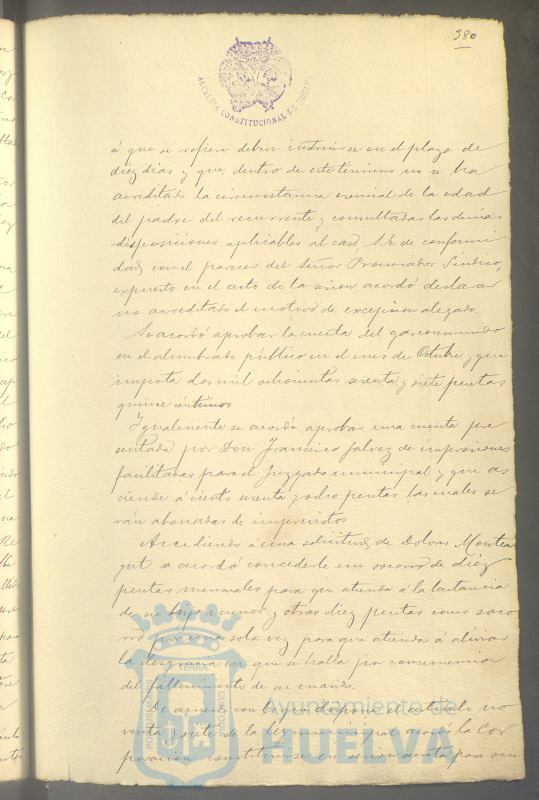 380
ALCALDIA CONSTITUCIONAL DE HUELVA
á que se refiere deben instruirse en el plazo de
diez dias y que dentro de este término no se ha
acreditado la circunstancia esencial de la edad
del padre del recurrente y consultadas las demás
disposiciones aplicables al caso, S.E. de conformi
dad con el parecer del Señor Procurador Síndico,
expuesto en el acto de la sesion acordó declarar
no acreditado el motivo de excepcion alegado.
Se acordó aprobar la cuenta del gas consumido
en el alumbrado público en el mes de Octubre y que
importa dos mil ochocientas sesenta y siete pesetas
quince céntimos
Igualmente se acordó aprobar una cuenta pre
sentada por Don Francisco Galvez de impresiones
facilitadas para el Juzgado municipal y que as
ciende á ciento sesenta y ocho pesetas las cuales se
rán abonadas de imprevistos
Accediendo á una solicitud de Dolores Montea
gut se acordó concederle un socorro de diez
pesetas mensuales para que atienda á la lactancia
de su hijo menor y otras diez pesetas como soco
rro por una sola vez para que atienda á aliviar
la desgracia en que se halla por consecuencia
del fallecimiento de su marido.
De acuerdo con lo que dispone el artículo no
venta y siete de la ley municipal acordó la Cor
poracion constituirse en sesion secreta para ocu
Ayuntamiento de
HUELVA